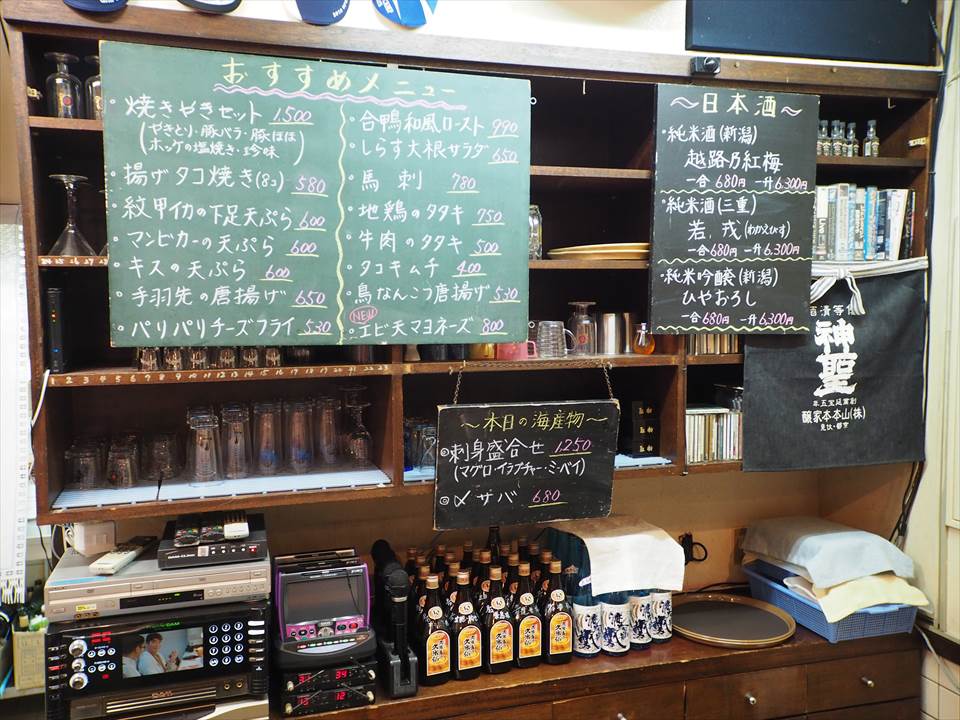 おすすめメニュー
・焼きやきセット 1,500
(やきとり・豚バラ・豚ほほ
ホッケの塩焼き・珍味)
・揚げタコ焼き(8コ) 580
・紋甲イカの下足天ぷら 600
・マンビカーの天ぷら 600
・キスの天ぷら 600
・手羽先の唐揚げ 650
・パリパリチーズフライ 530
・合鴨和風ロースト 990
・しらす大根サラダ 650
・馬刺 780
・地鶏のタタキ 750
・牛肉のタタキ 500
・タコキムチ 400
・鳥なんこつ唐揚げ 530
NEW
・エビ天マヨネーズ 800
～日本酒～
・純米酒(新潟)
越路乃紅梅
一合680円 一升6,300円
・純米酒(三重)
若、戎(わかえびす)
一合680円 一升6,300円
・純米吟醸(新潟)
ひやおろし
一合680円 一升6,300円
～本日の海産物～
◎刺身盛合せ 1,250
(マグロ・イラブチャー・ミーバイ)
◎〆サバ 680
酒清等特
神聖
年五宝延業創
醸家本本山(株)
見伏・都京
2 3 4 5 6 7 8 9 10 11 12 13 14 15 16 17 18 19 20 21 22 23
久米仙